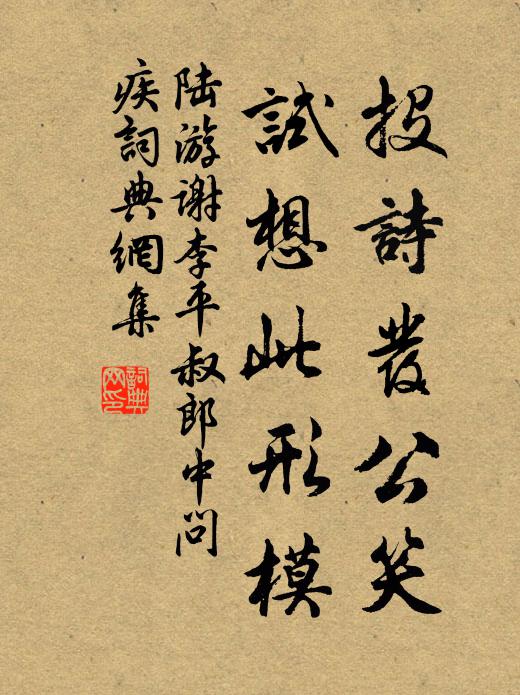 投詩發公笑
試想此形模
陆游谢李平叔郎中問
疾詞典網集
詞典網印